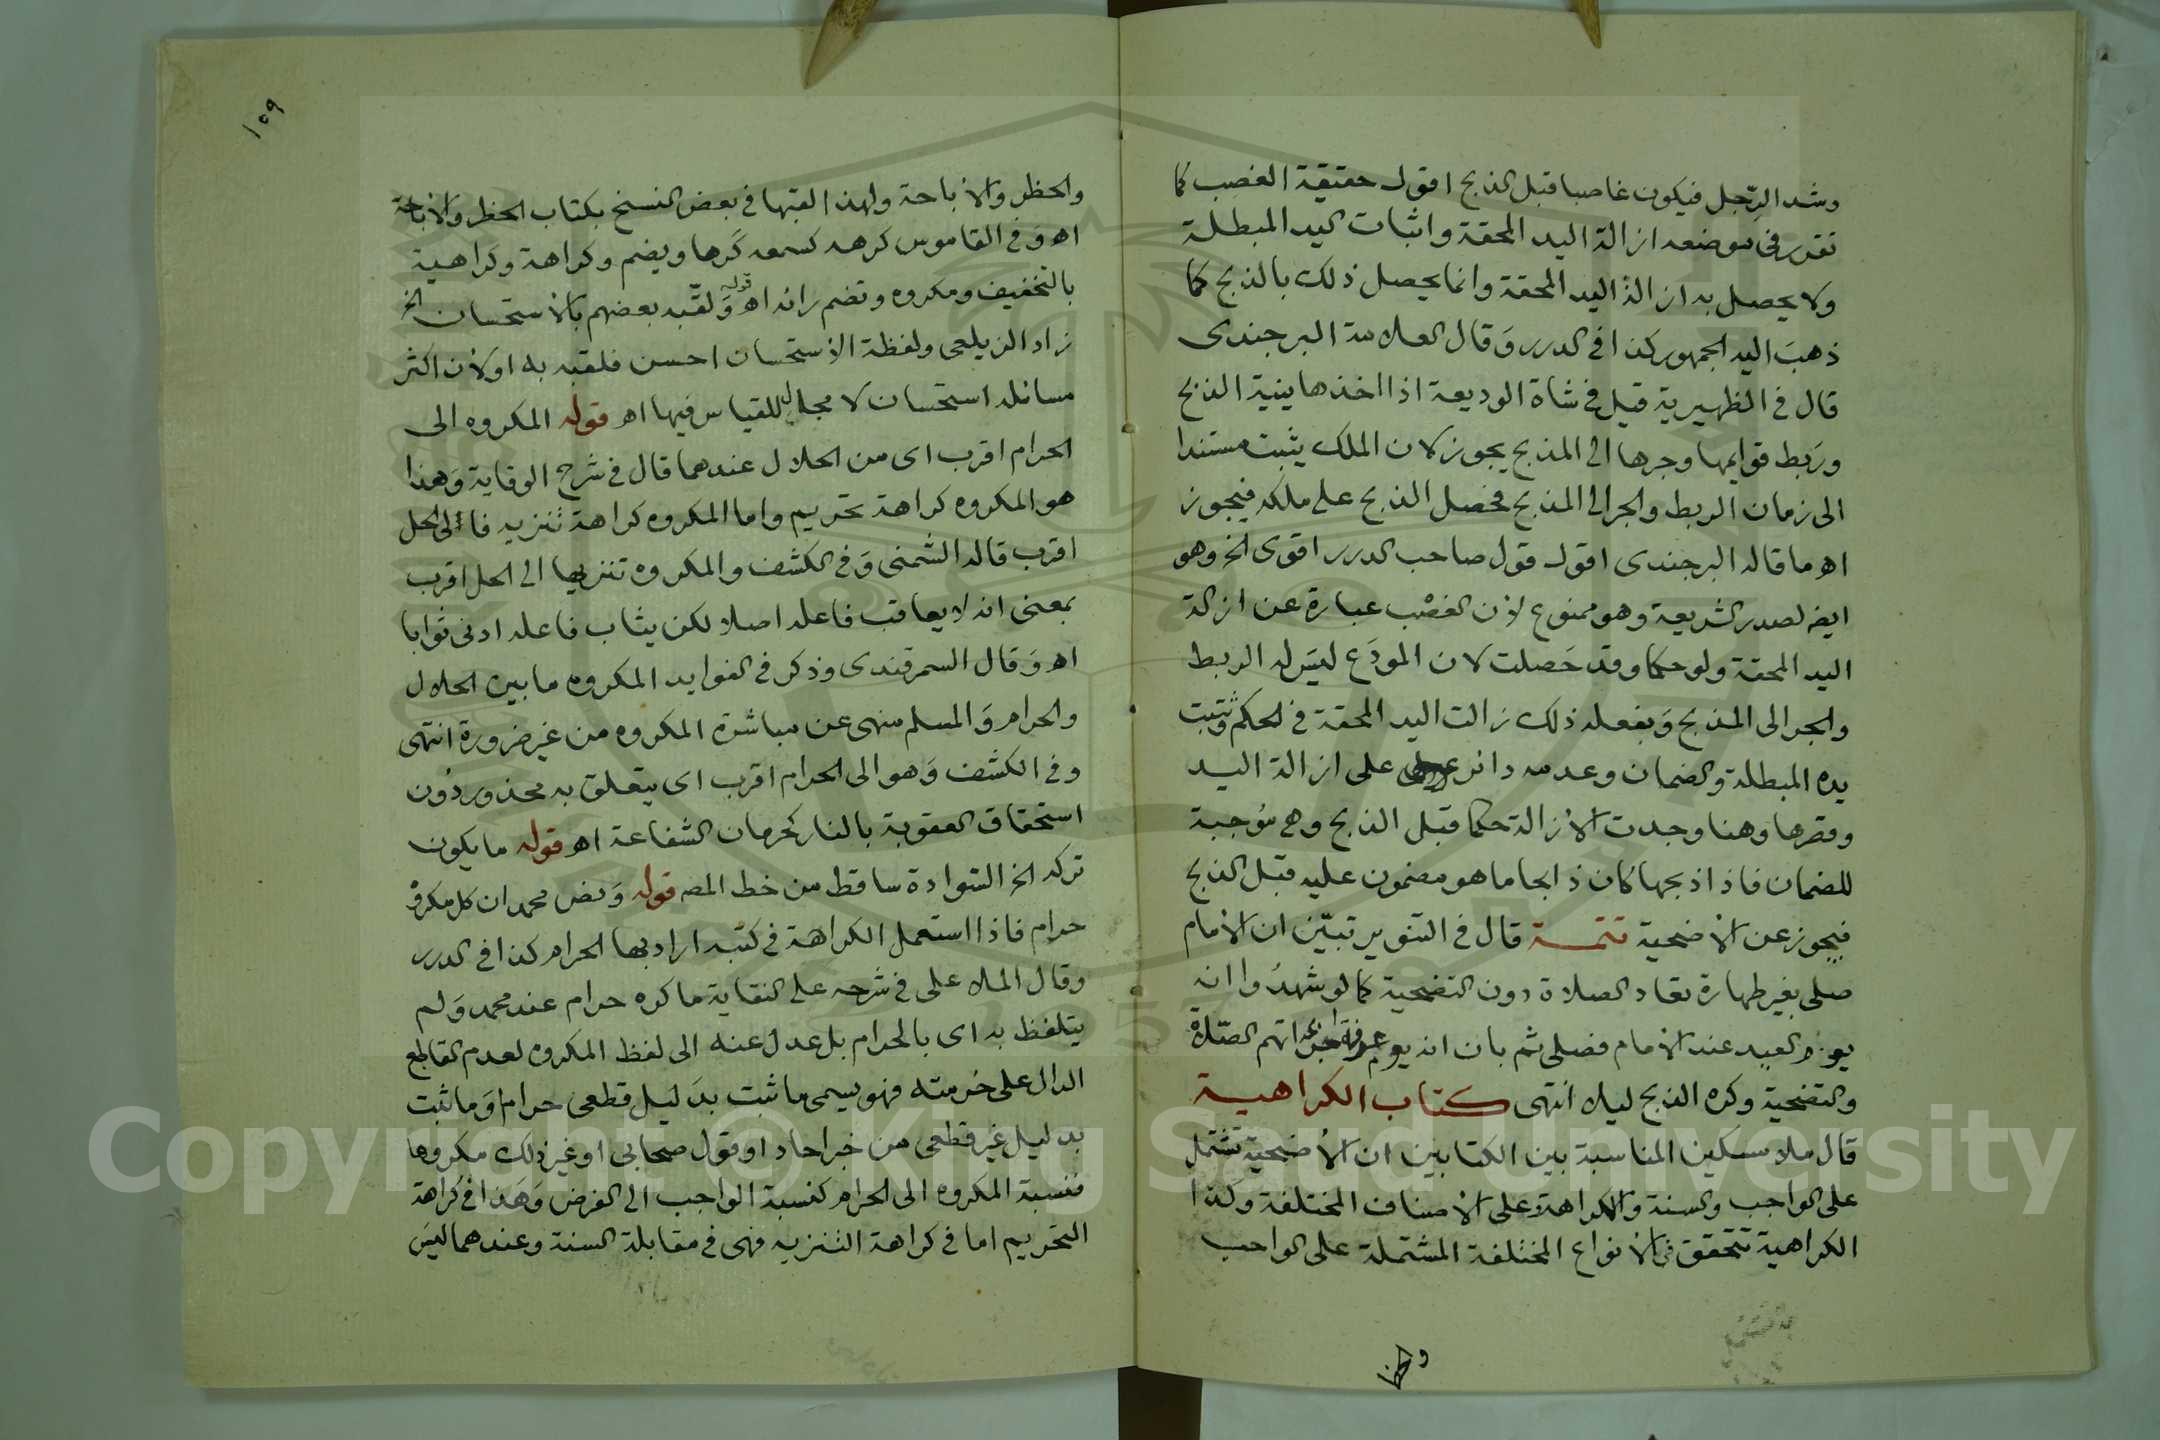 وشد الرجل فيكون غاصبا قبل الذبح اقول حقيقة الغصب كما
تقرر في موضعه ازالة اليد المحقة واثبات اليد المبطلة
ولا يحصل به ازالة اليد المحقة وانما يحصل ذلك بالذبح كما
ذهب اليه الجمهور كذا في الدرر وقال العلامة البرجندى
قال في الظهيرية قيل في شاة الوديعة اذا اخذها بنية الذبح
وربط قوايمها وجرها الى المذبح يجوز لان الملك يثبت مستندا
الى زمان الربط والجر الى المذبح فحصل الذبح على ملكه فيجوز
اه ما قاله البرجندى اقول قول صاحب الدرر اقوى الخ وهو
ايضه لصدر الشريعة وهو ممنوع لان الغصب عبارة عن ازالة
اليد المحقة ولو حكما وقد حصلت لان المودع ليس له الربط
والجر الى المذبح وبفعله ذلك زالت اليد المحقة في الحكم وثبت
يده المبطلة والضمان وعدمه دائر على ازالة اليد
وقصرها وهنا وجدت الازالة حكما قبل الذبح وهي موجبة
للضمان فاذا ذبحها كان ذابحا ما هو مضمون عليه قبل الذبح
فيجوز عن الاضحية تتمة قال في التنوير تبين ان الامام
صلى بغير طهارة تعاد الصلاة دون التضحية كما لو شهدوا انه
يوم العيد عند الامام فصلى ثم بان انه يوم عرفة اجزاتهم الصلاة
والتضحية وكره الذبح ليلا انتهى كتاب الكراهية
قال ملا مسكين المناسبة بين الكتابين ان الاضحية تشتمل
على الواجب والسنة والكراهة على الاصناف المختلفة وكذا
الكراهية تتحقق في الانواع المختلفة المشتملة على الواجب
والحظر
١٥٩
والحظر والاباحة ولهذا لقبها في بعض النسخ بكتاب الحظر والاباحة
اه وفي القاموس كرهه كسمعه كرها ويضم وكراهة وكراهية
بالتخفيف ومكروه وتضم رائه اه قوله ولقبه بعضهم بالاستحسان الخ
زاد الزيلعى ولفظة الاستحسان احسن فلقبه به اولان اكثر
مسائله استحسان لا مجال للقياس فيها اه قوله المكروه الى
الحرام اقرب اى من الحلال عندهما قال في شرح الوقاية وهذا
هو المكروه كراهة تحريم واما المكروه كراهة تنزيه فالى الحل
اقرب قاله الشمنى وفي الكشف والمكروه تنزيها الى الحل اقرب
بمعنى انه لا يعاقب فاعله اصلا لكن يثاب فاعله ادنى ثوابا
اه وقال السمرقندى وذكر في الفوايد المكروه ما بين الحلال
والحرام والمسلم منهى عن مباشرة المكروه من غير ضرورة انتهى
وفي الكشف وهو الى الحرام اقرب اى يتعلق به محذور دون
استحقاق العقوبة بالنار كحرمان الشفاعة اه قوله ما يكون
تركه الخ السوادة ساقط من خط المصه قوله ونص محمد ان كل مكروه
حرام فاذا استعمل الكراهة في كتبه اراد بها الحرام كذا في الدرر
وقال الملا على في شرحه على النقاية ما كره حرام عند محمد ولم
يتلفظ به اى بالحرام بل عدل عنه الى لفظ المكروه لعدم القاطع
الدال على حرمته فهو يسمى ما ثبت بدليل قطعى حرام وما ثبت
بدليل غير قطعى من خبر احاد او قول صحابى او غير ذلك مكروها
فنسبة المكروه الى الحرام كنسبة الواجب الى الفرض وهذا في كراهة
التحريم اما في كراهة التنزيه فهى في مقابلة السنة وعندهما ليس
Copyright © King Saud University